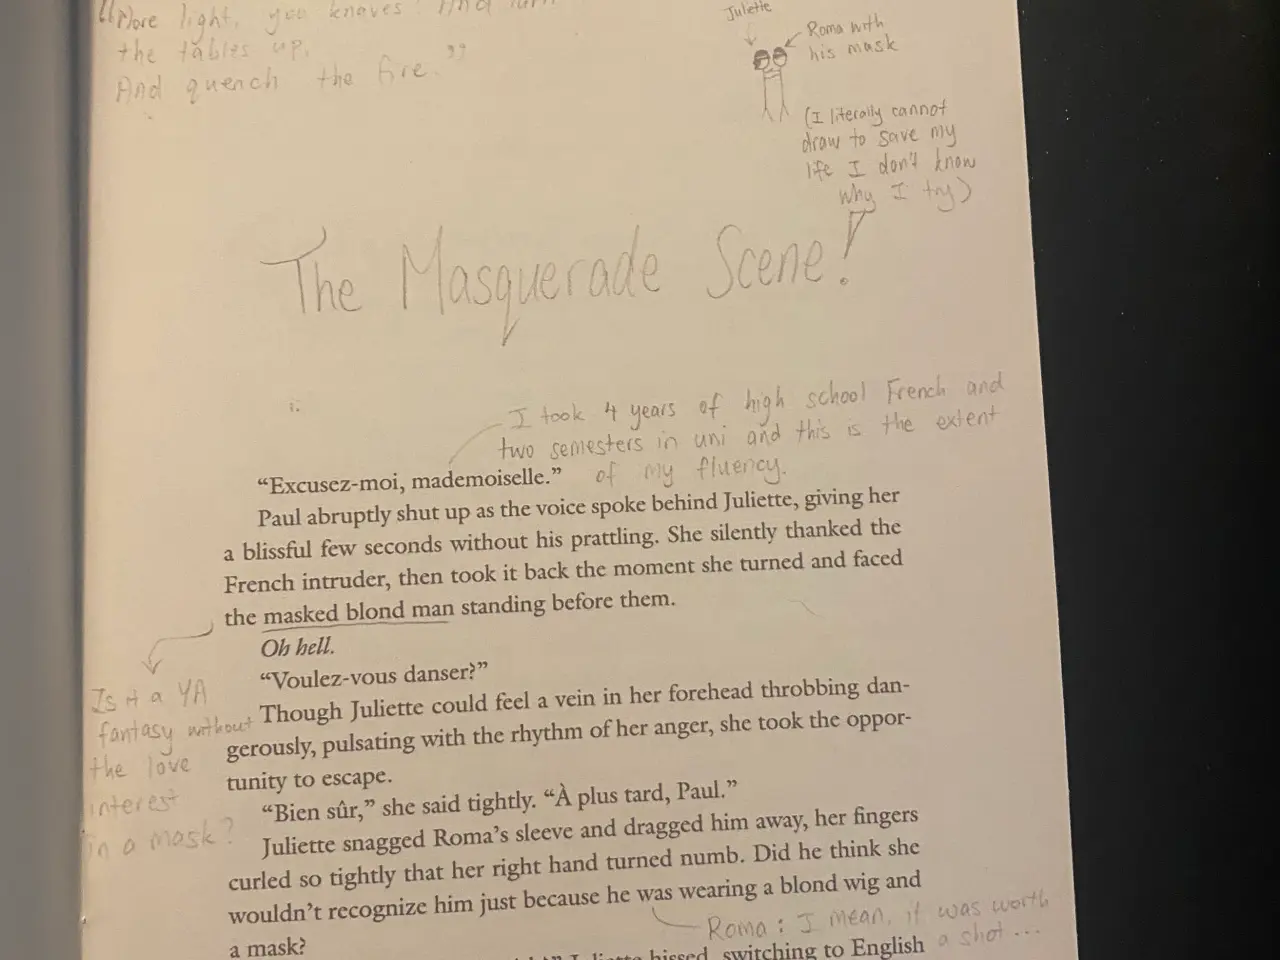 "More light, you knaves! And turn
the tables up,
And quench the fire."
Juliette
Roma with
his mask
(I literally cannot
draw to save my
life I don't know
why I try)
The Masquerade Scene!
I took 4 years of high school French and
two semesters in uni and this is the extent
of my fluency.
"Excusez-moi, mademoiselle."
Paul abruptly shut up as the voice spoke behind Juliette, giving her
a blissful few seconds without his prattling. She silently thanked the
French intruder, then took it back the moment she turned and faced
the masked blond man standing before them.
Oh hell.
"Voulez-vous danser?"
Though Juliette could feel a vein in her forehead throbbing dan-
gerously, pulsating with the rhythm of her anger, she took the oppor-
tunity to escape.
"Bien sûr," she said tightly. "À plus tard, Paul."
Juliette snagged Roma's sleeve and dragged him away, her fingers
curled so tightly that her right hand turned numb. Did he think she
wouldn't recognize him just because he was wearing a blond wig and
a mask?
Is it a YA
fantasy without
the love
interest
in a mask?
Roma: I mean, it was worth
a shot...
Juliette hissed, switching to English